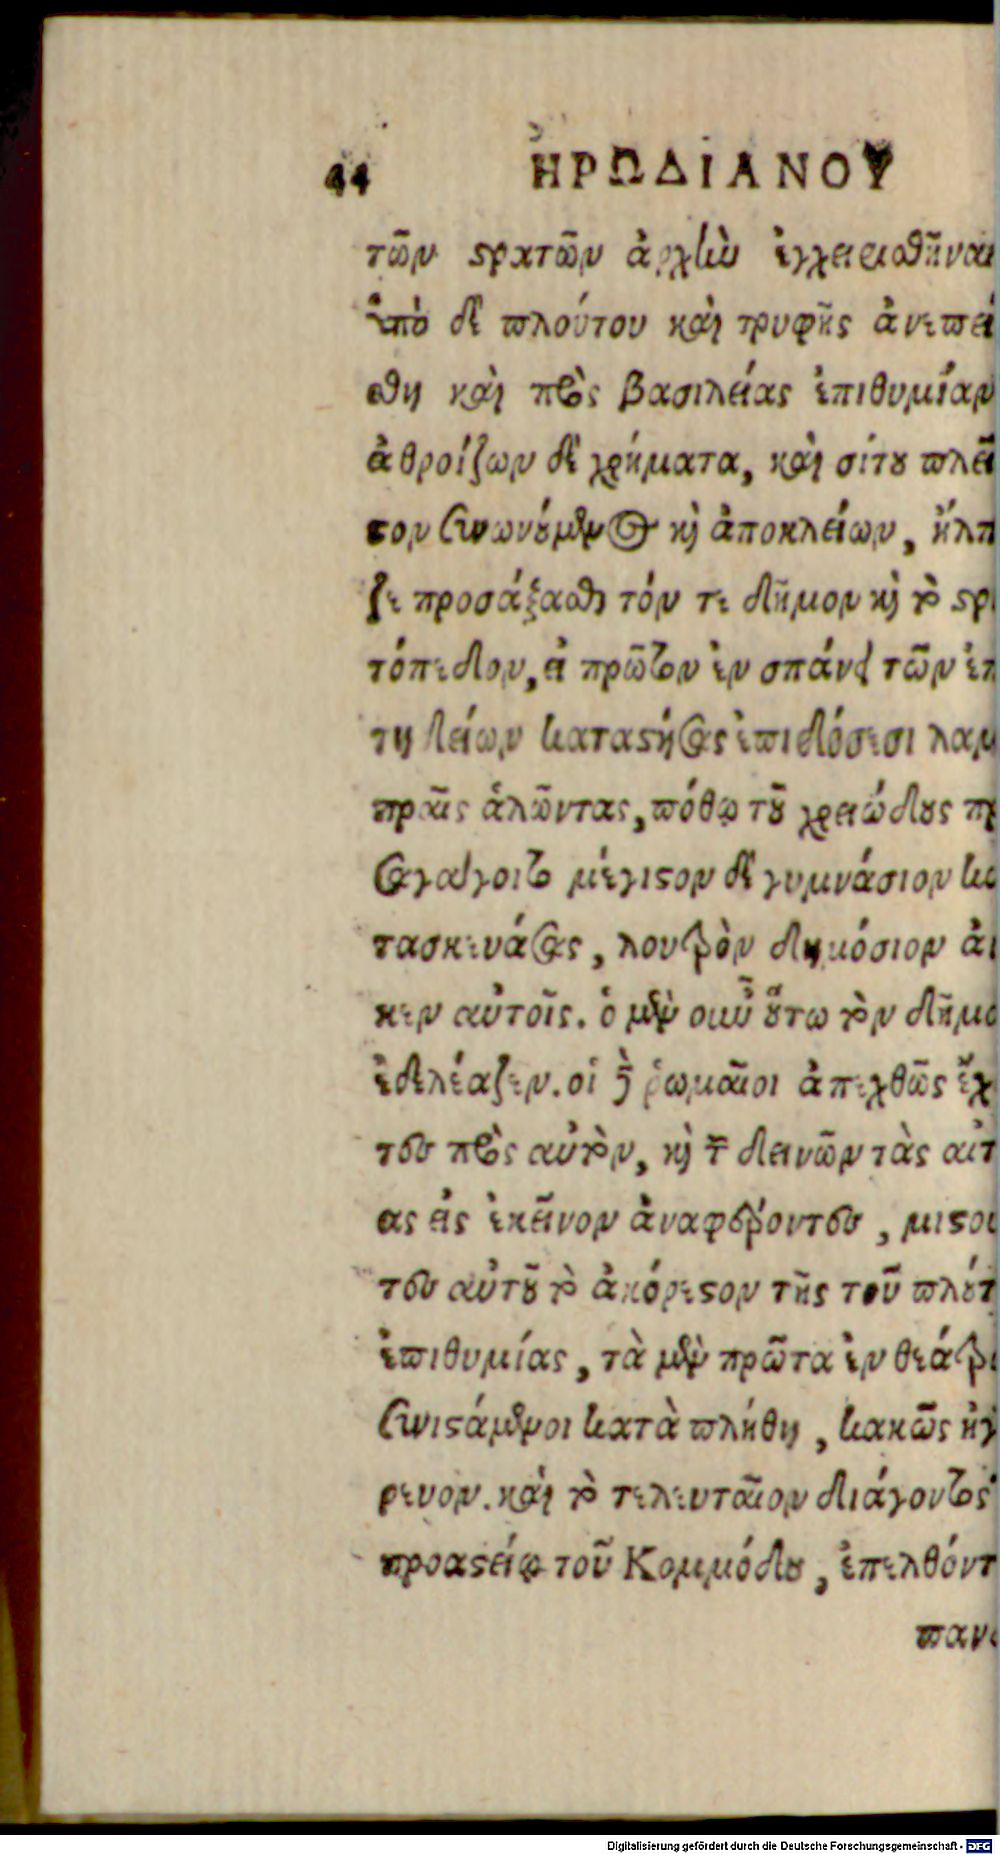 44 ἩΡΩΔΙΑΝΟΥ
τῶν στρατῶν ἀρχὴν ἐγχειρισθῆναι
ὑπὸ δὲ πλούτου καὶ τρυφῆς ἀνεπεί
σθη καὶ πρὸς βασιλείας ἐπιθυμίαν
ἀθροίζων δὲ χρήματα, καὶ σίτου πλεῖ
στον συνωνούμενος καὶ ἀποκλείων, ἤλπ
ζε προσάξασθαι τόν τε δῆμον καὶ τὸ στρ
τόπεδον, εἰ πρῶτον ἐν σπάνει τῶν ἐπ
τηδείων καταστήσας ἐπιδόσεσι λαμ
πραῖς ἁλῶντας, πόθῳ τοῦ χρειώδους π
σαγάγοιτο μέγιστον δὲ γυμνάσιον κα
τασκευάσας, λουτρὸν δημόσιον ἀ
κεν αὐτοῖς. ὁ μὲν οὖν οὕτω τὸν δῆμο
ἐδελέαζεν. οἱ δὲ ῥωμαῖοι ἀπεχθῶς ἔχ
τες πρὸς αὐτὸν, καὶ τῶν δεινῶν τὰς αἰτ
ας εἰς ἐκεῖνον ἀναφέροντες, μισοῦ
τες αὐτοῦ τὸ ἀκόρεστον τῆς τοῦ πλούτ
ἐπιθυμίας, τὰ μὲν πρῶτα ἐν θεάτρ
συνιστάμενοι κατὰ πλήθη, κακῶς ἠγ
ρευον. καὶ τὸ τελευταῖον διάγοντος
προαστείῳ τοῦ Κομμόδου, ἐπελθόντ
παν
Digitalisierung gefördert durch die Deutsche Forschungsgemeinschaft - DFG